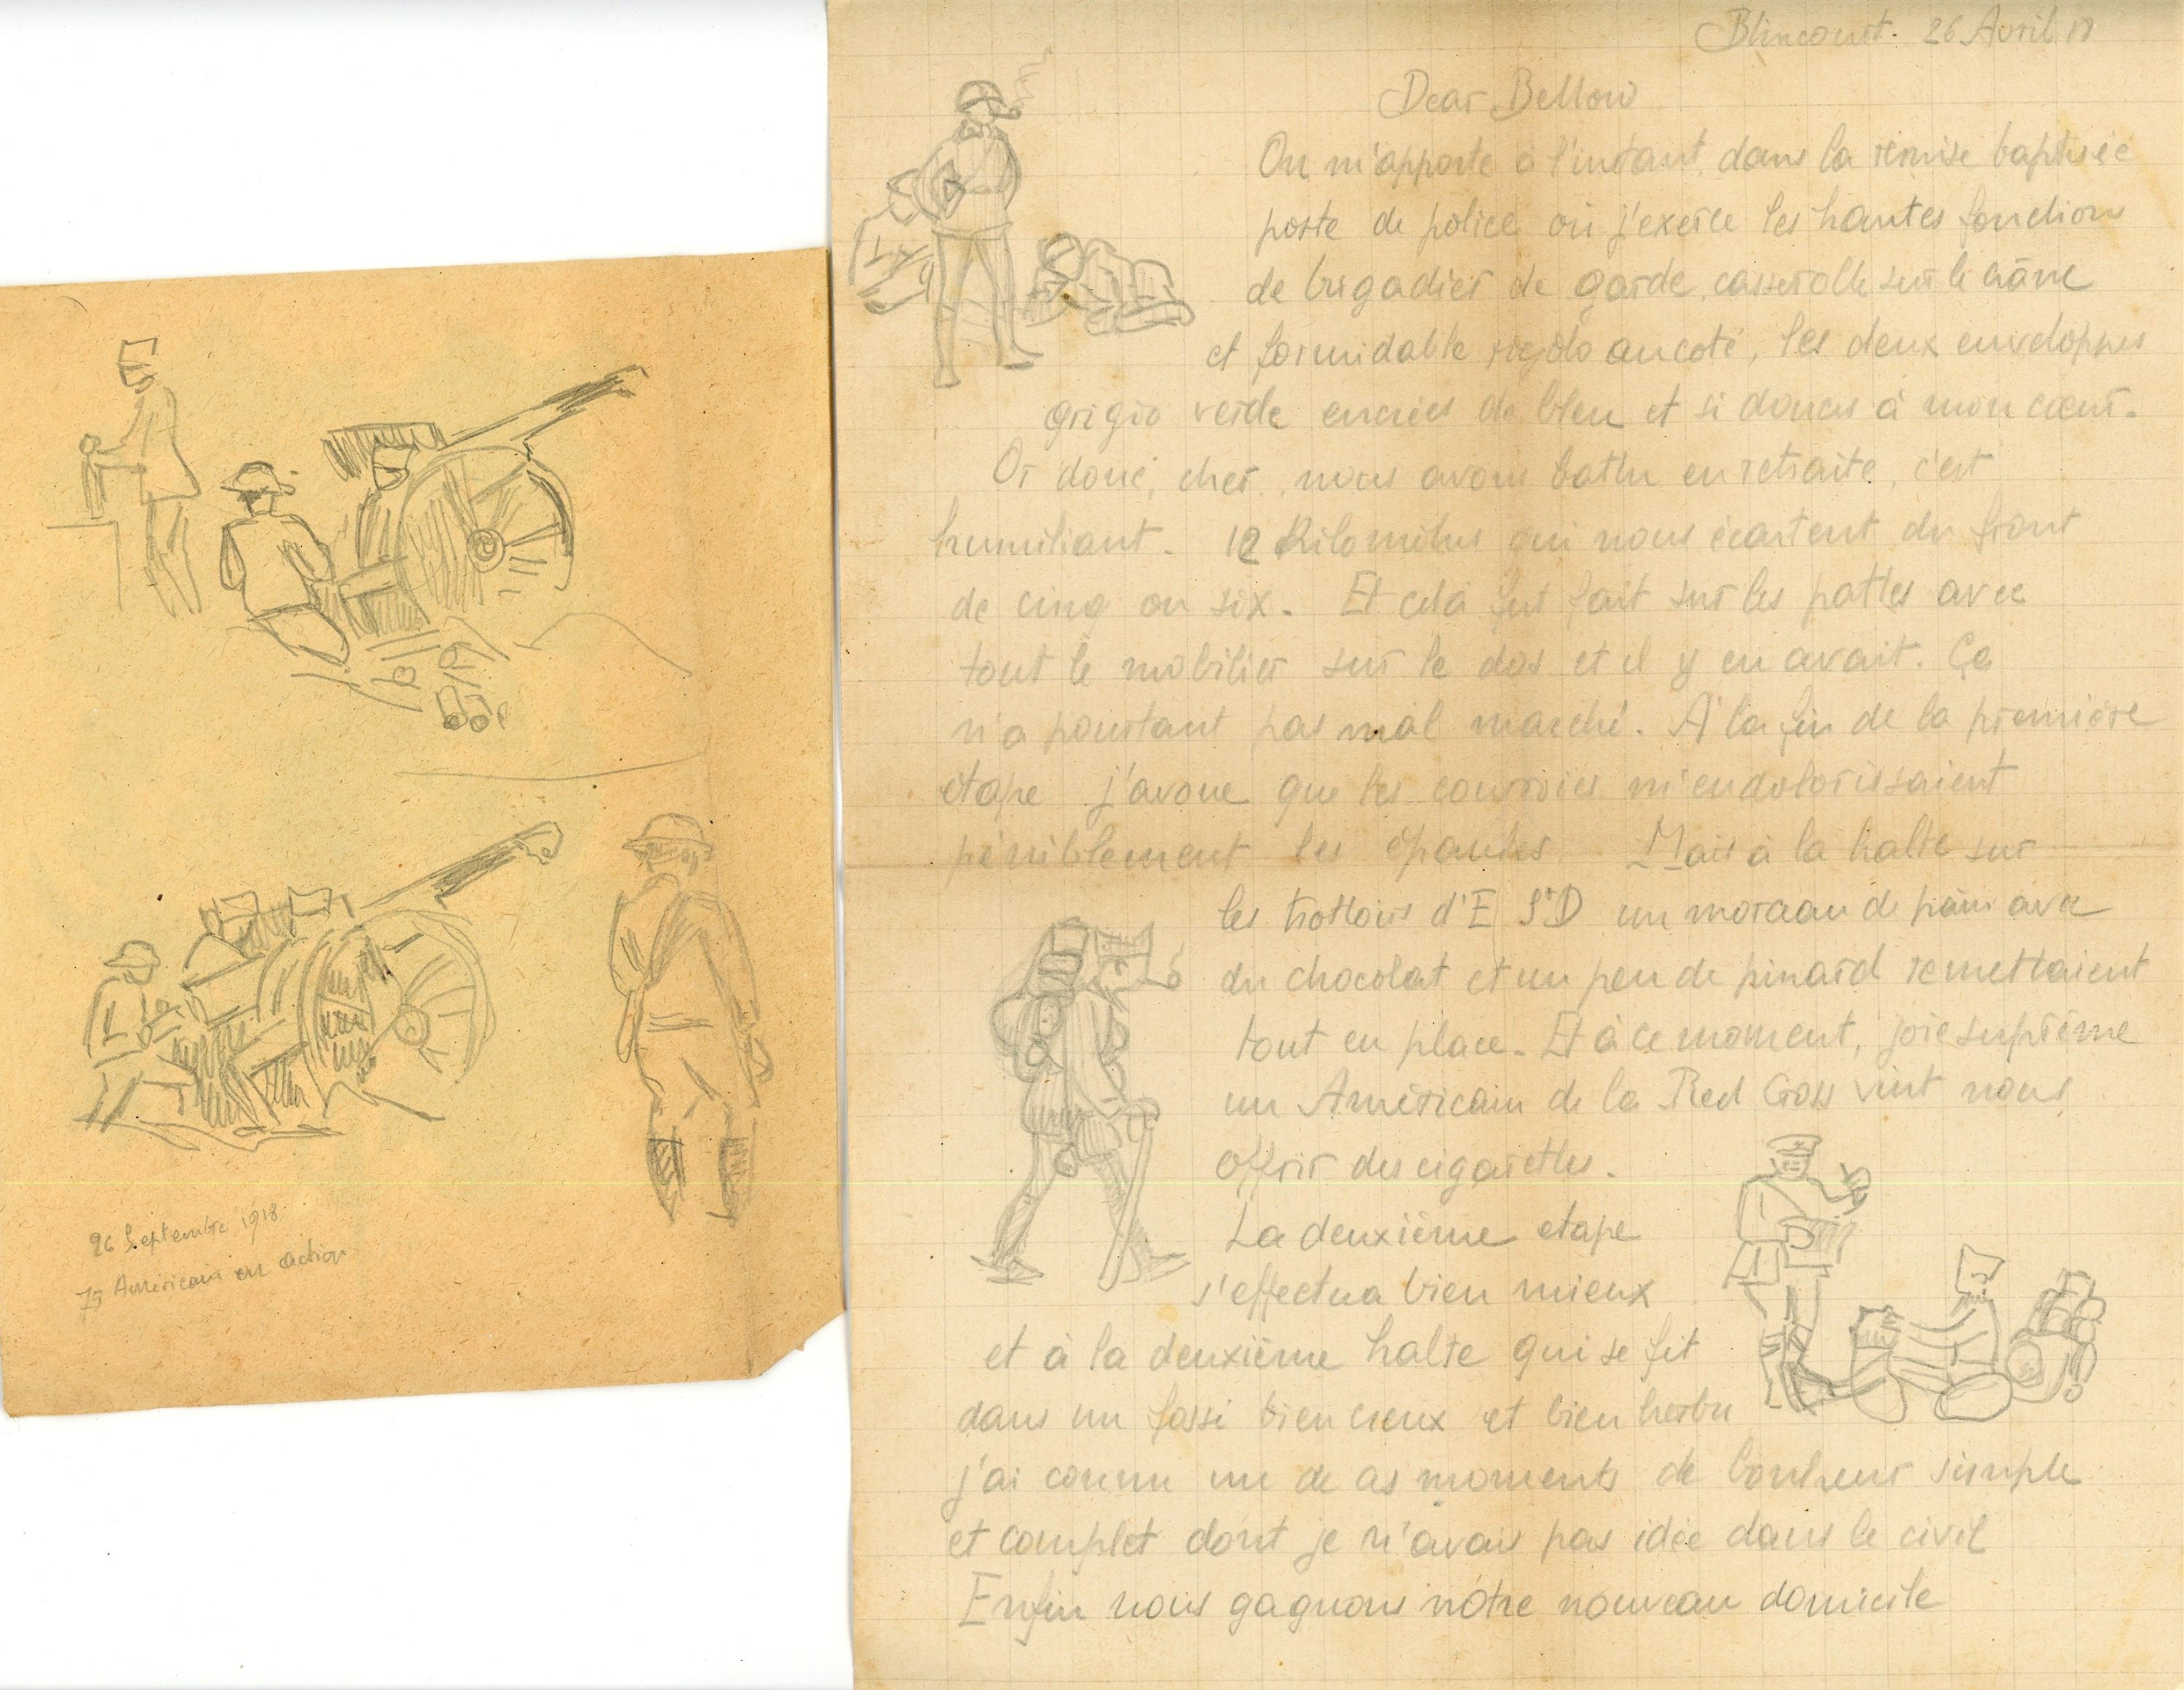 26 Septembre 1918
75 Américain en action
Blincourt. 26 Avril 18
Dear Bellow
On m'apporte à l'instant dans la remise baptisée
poste de police où j'exerce les hautes fonctions
de brigadier de garde, casserolle sur le crâne
et formidable rigolo au coté, les deux enveloppes
grigio verde encrées de bleu et si douces à mon cœur.
Or donc, cher, nous avons battu en retraite, c'est
humiliant. 12 Kilomètres qui nous écartent du front
de cinq ou six. Et cela fut fait sur les pattes avec
tout le mobilier sur le dos et il y en avait. Ça
n'a pourtant pas mal marché. A la fin de la première
étape j'avoue que les courroies m'endolorissaient
péniblement les épaules. Mais à la halte sur
les trottoirs d'E St D un morceau de pain avec
du chocolat et un peu de pinard remettaient
tout en place. Et à ce moment, joie suprême
un Américain de la Red Cross vint nous
offrir des cigarettes.
La deuxième etape
s'effectua bien mieux
et à la deuxième halte qui se fit
dans un fossé bien creux et bien herbu
j'ai connu un de ces moments de bonheur simple
et complet dont je n'avais pas idée dans le civil
Enfin nous gagnons nôtre nouveau domicile